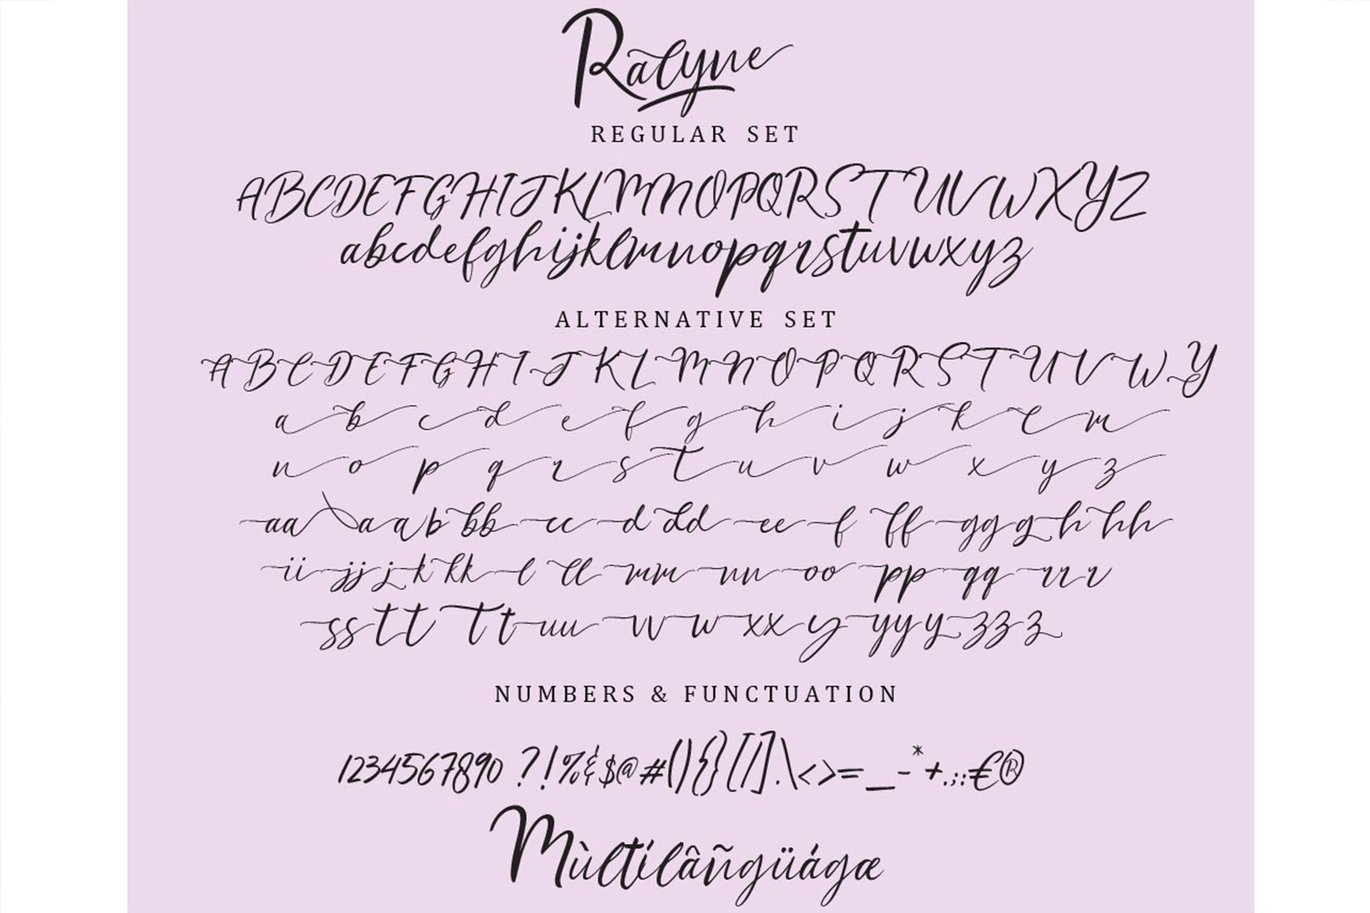 Ralyne
REGULAR SET
ABCDEFGHIJKLMNOPQRSTUVWXYZ
abcdefghijklmnopqrstuvwxyz
ALTERNATIVE SET
A B C D E F G H I J K L M N O P Q R S T U V W Y
a b c d e f g h i j k l m
n o p q r s t u v w x y z
aa a a b bb cc d dd ee f ff gg g h hh
ii jj j k kk l ll mm nn oo pp qq rr r
ss t t T t t uu vv w xx y yy y zz z
NUMBERS & FUNCTUATION
1234567890 ?!%&$@#(){}[/].\<>=_-*+.,:;€®
Mùltílâñgüágæ